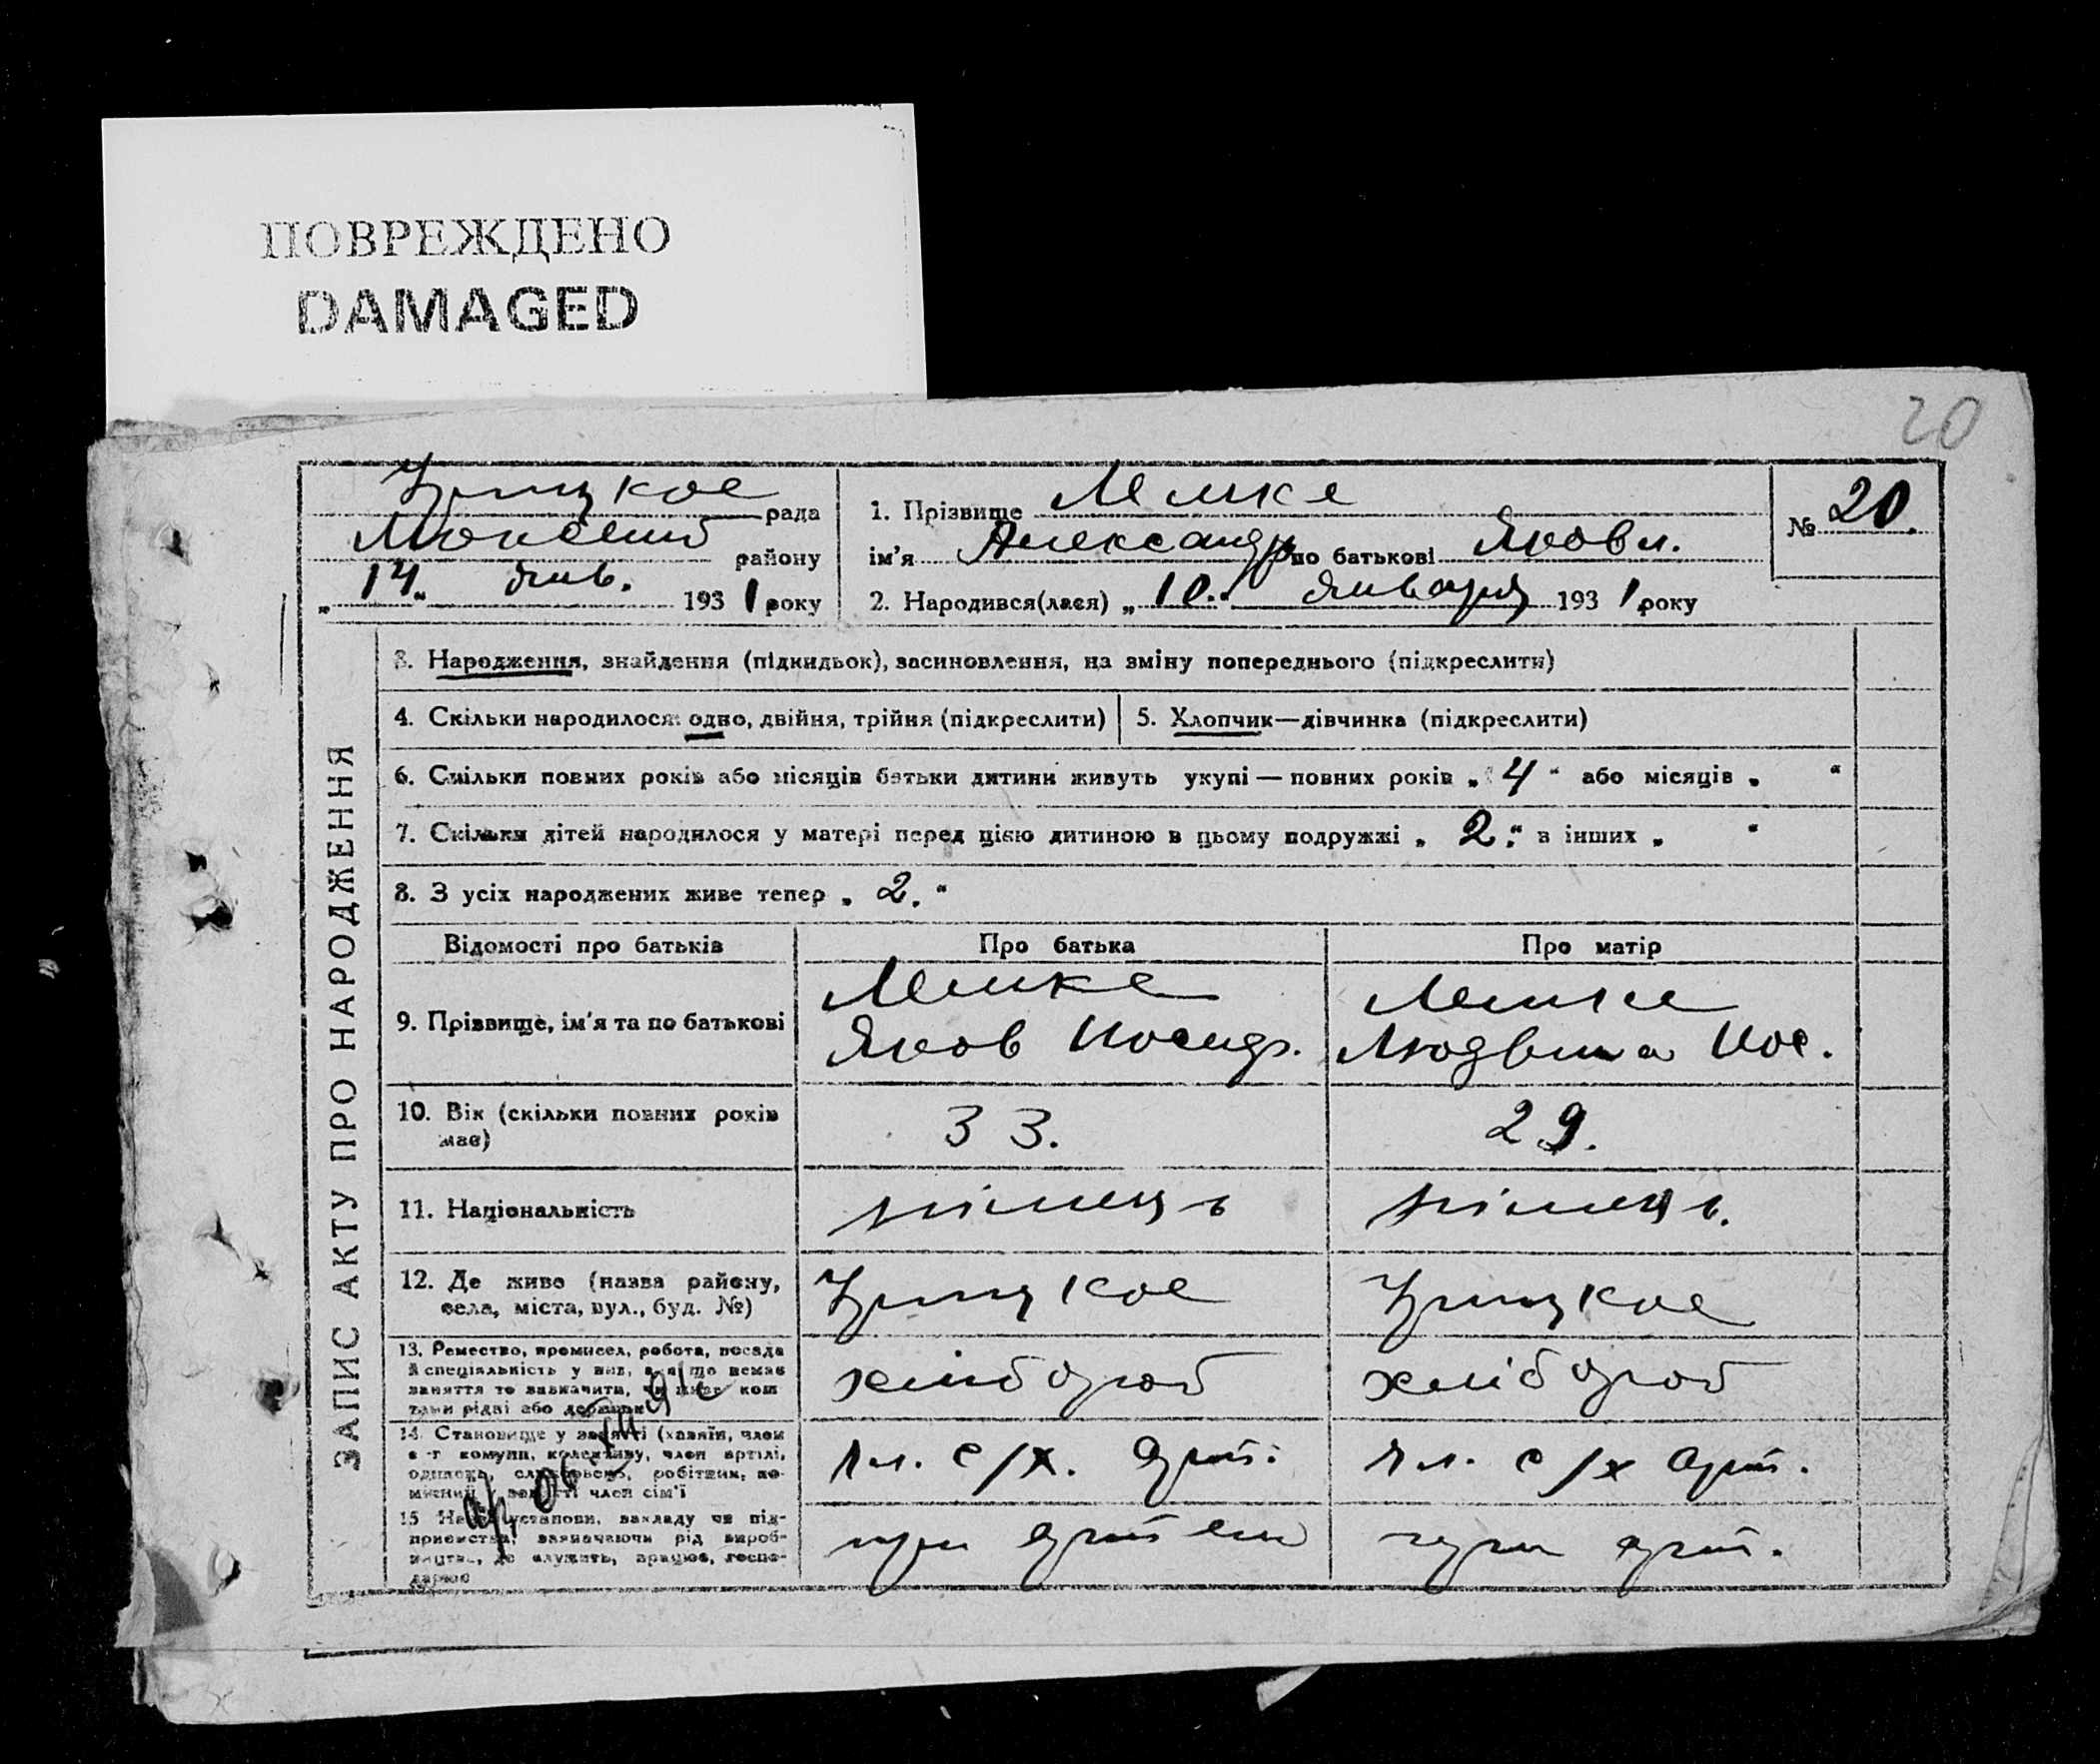 ПОВРЕЖДЕНО
DAMAGED
20
Урицкое рада
района
"14" янв. 1931 року
1. Прізвище Лемке
ім'я Александр по батькові Яковл.
2. Народився(лася) "10." января 1931 року
№ 20.
ЗАПИС АКТУ ПРО НАРОДЖЕННЯ
3. Народження, знайдення (підкидьок), засиновлення, на зміну попереднього (підкреслити)
4. Скільки народилося: одно, двійня, трійня (підкреслити)
5. Хлопчик—дівчинка (підкреслити)
6. Скільки повних років або місяців батьки дитини живуть укупі — повних років „ 4 " або місяців „ "
7. Скільки дітей народилося у матері перед цією дитиною в цьому подружжі „ 2. " в інших „ "
8. З усіх народжених живе тепер „ 2. "
Відомості про батьків Про батька Про матір
9. Прізвище, ім'я та по батькові
Лемке
Яков Иосиф.
Лемке
Людвина Иос.
10. Вік (скільки повних років має)
33.
29.
11. Національність
німець
німець.
12. Де живе (назва району,
села, міста, вул., буд. №)
Урицкое
Урицкое
13. Ремество, промисел, робота, посада
й спеціяльність у них, якщо немає
заняття то зазначити, чи живе кош
тами рідні або держави
хлібороб
хлібороб
14. Становище у занятті (хазяїн, член
с.-г комуни, колективу, член артілі,
одинак, службовець, робітник,
член сім'ї
чл. с/х. арт.
чл. с/х арт.
15 Назва установи, закладу чи під-
приємства, зазначаючи рід вироб-
ництва, де служить, працює, госпо-
дарює
при артели
при арт.